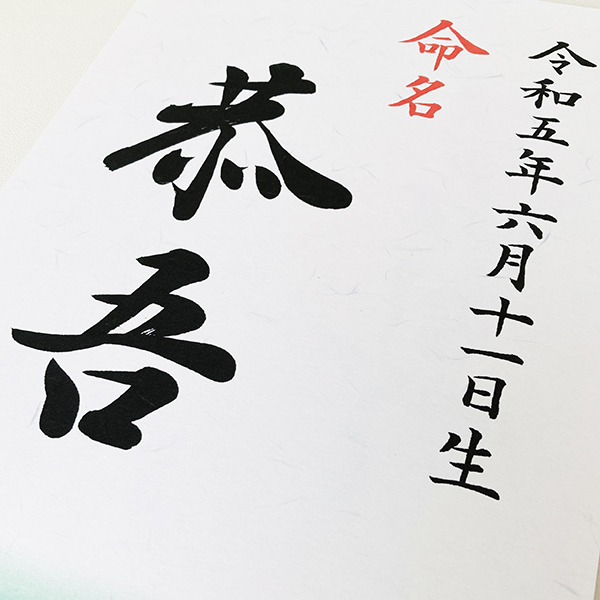 令和五年六月十一日生
命名
恭吾